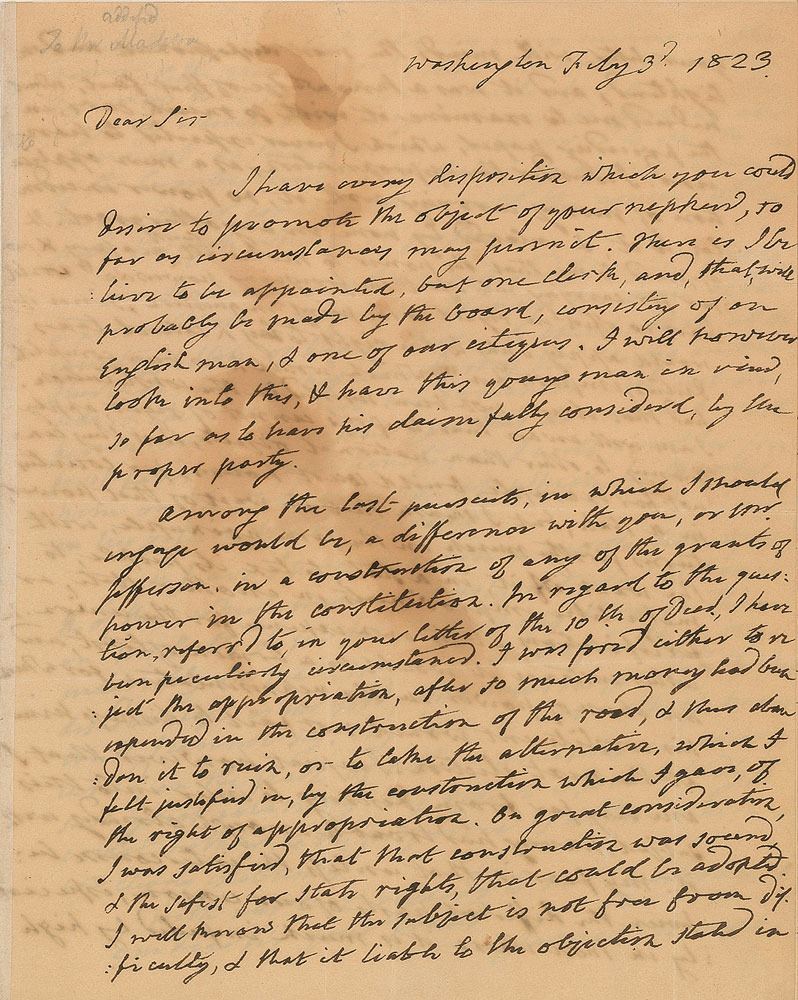 addsd
To Mr Madison
Washington Feby 3d. 1823.
Dear Sir
I have every disposition which you could
desire to promote the object of your nephew, so
far as circumstances may permit. There is I be
:lieve to be appointed, but one clerk, and, that, will
probably be made by the board, consisting of an
English man, & one of our citizens. I will however
look into this, & have this young man in view,
so far as to have his claim fully considerd, by the
proper party.
Among the last pursuits, in which I should
engage would be, a difference with you, or Mr.
Jefferson. in a construction of any of the grants of
power in the constitution. In regard to the ques:
tion, referr'd to, in your letter of the 10th of Decr, I have
been peculiarly circumstanc'd. I was forc'd either to re
:ject the appropriation, after so much money had been
expended in the construction of the road, & thus aban
:don it to ruin, or to take the alternative, which I
felt justified in, by the construction which I gave, of
the right of appropriation. On great consideration,
I was satisfied, that that construction was sound,
& the safest for State rights, that could be adopted.
I well know that the subject is not free from dif.
:ficulty, & that it liable to the objection stated in